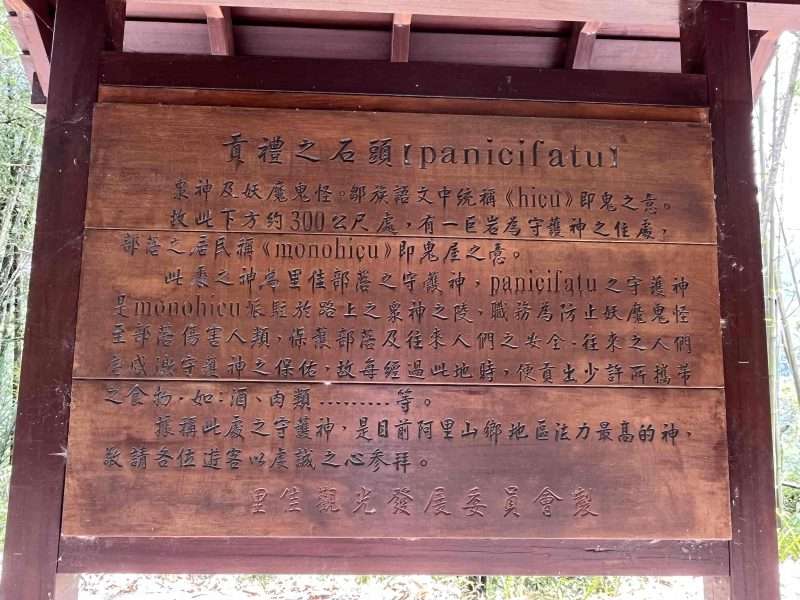 貢禮之石頭【panicifatu】
衆神及妖魔鬼怪。鄒族語文中統稱《hicu》即鬼之意。
故此下方約300公尺處，有一巨岩為守護神之住處，
部落之居民稱《monohicu》即鬼屋之意。
此處之神為里佳部落之守護神，panicifatu之守護神
是monohicu派駐於路上之衆神之陵，職務為防止妖魔鬼怪
至部落傷害人類，保護部落及往來人們之安全．往來之人們
感激守護神之保佑，故每經過此地時，便貢出少許所攜帶
之食物．如：酒、肉類………等。
據稱此處之守護神，是目前阿里山鄉地區法力最高的神，
敬請各位遊客以虔誠之心參拜。
里佳觀光發展委員會製